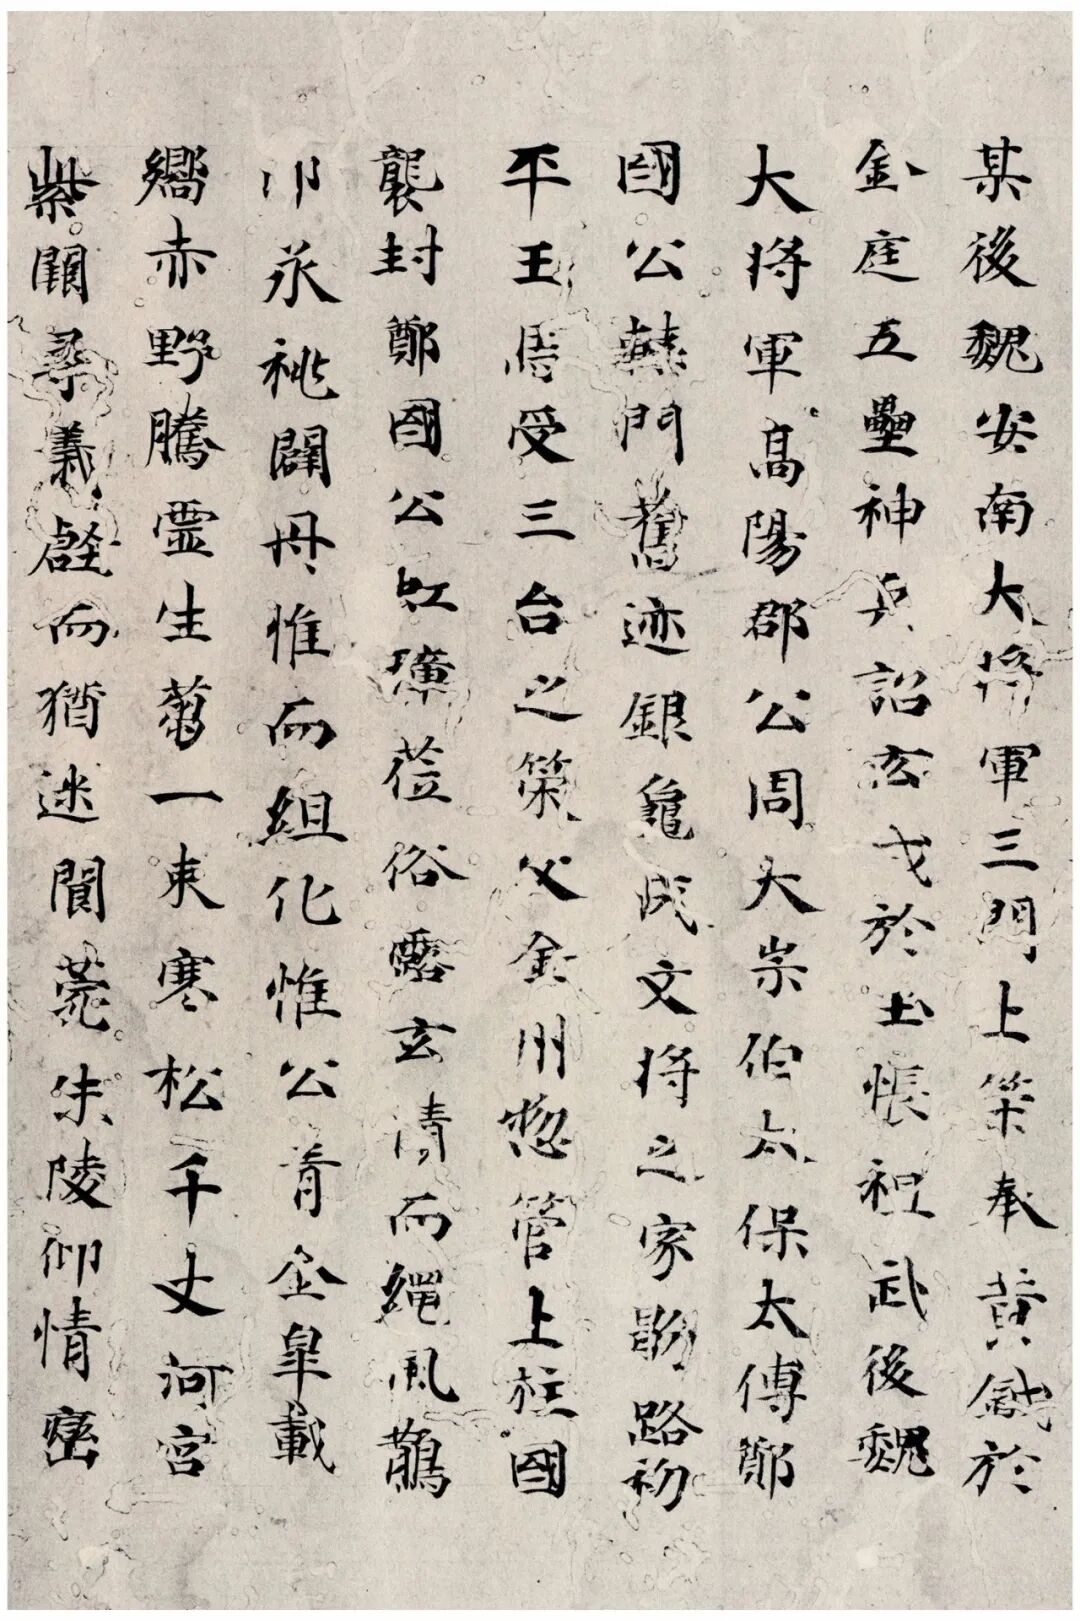 某後魏安南大將軍三門上策奉黃鉞於
金庭五壘神兵詔玄戈於玉帳祖武後魏
大將軍高陽郡公周大宗伯太保太傅鄭
國公赫門舊迹銀龜成文將之家勛路初
平王周受三台之策父金州惣管上柱國
襲封鄭國公虹瓊莅俗露玄清而繩風鵲
印永祧闢丹惟而組化惟公青丘阜載
嚮赤野騰靈生蒭一束寒松千丈河宮
紫闕尋羲啟而猶迷閬菀朱陵仰情巒